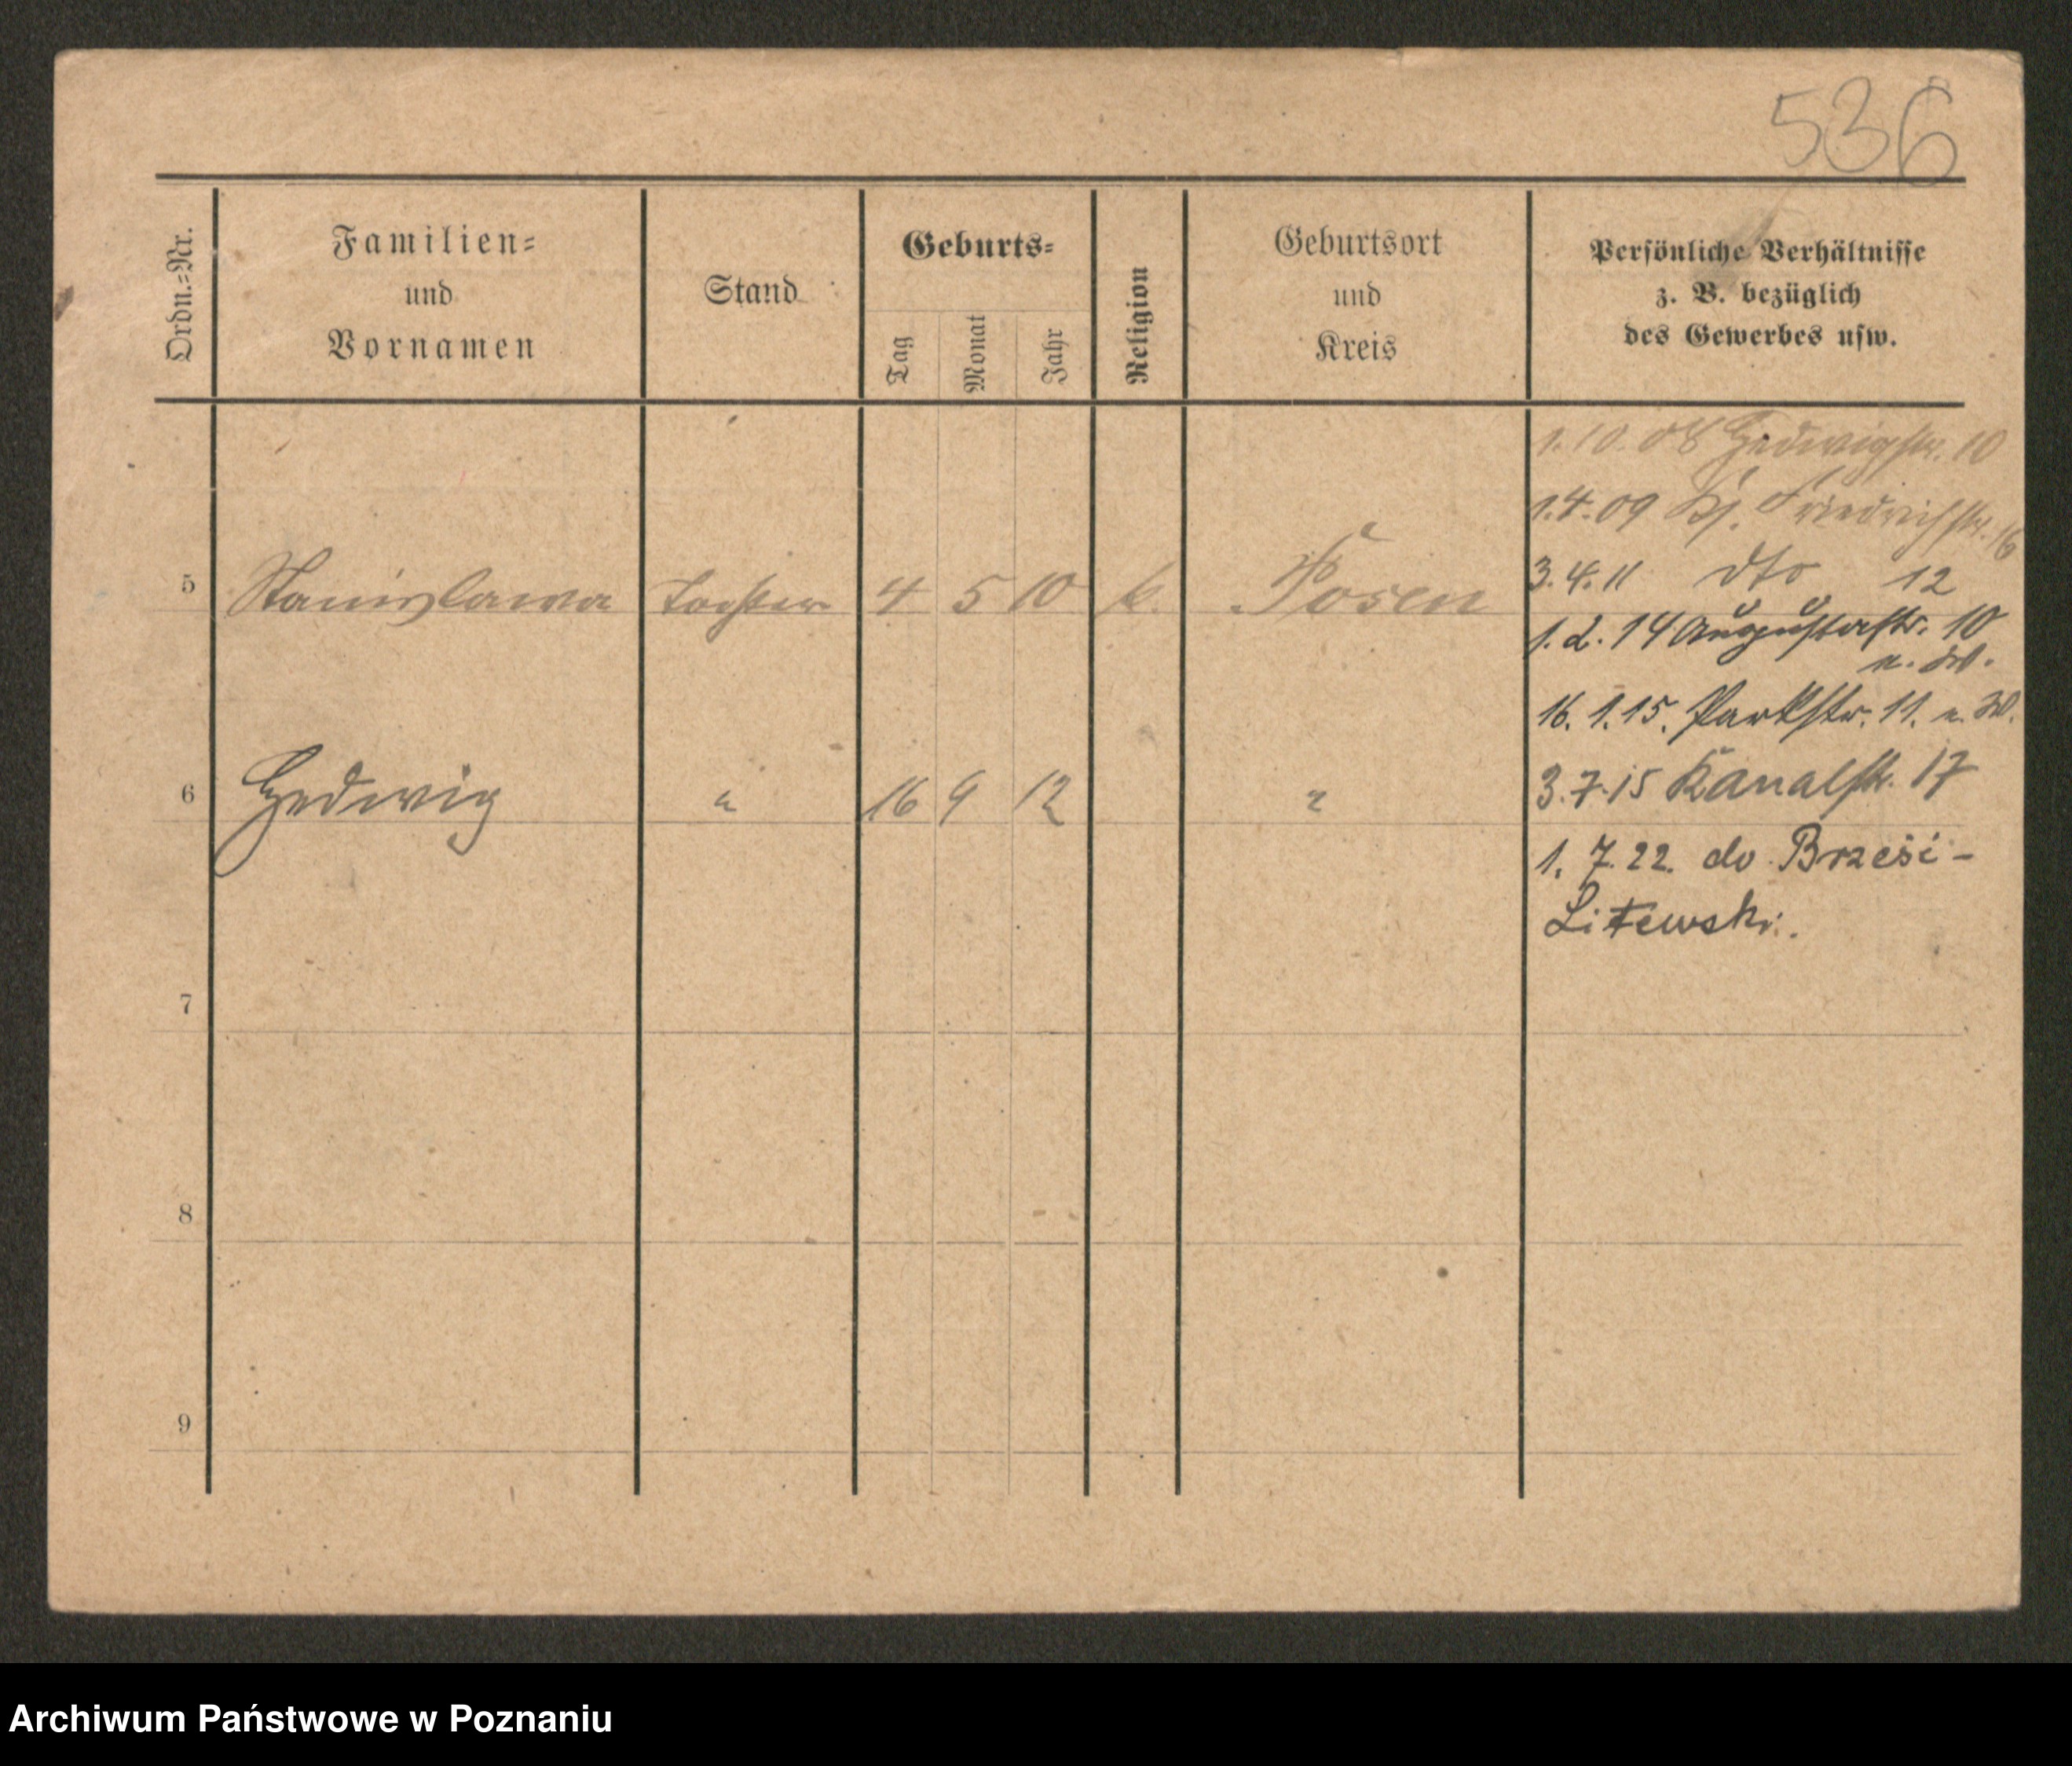 536
Ordn.=Nr.
Familien=
und
Vornamen
Stand
Geburts=
Tag
Monat
Jahr
Religion
Geburtsort
und
Kreis
Persönliche Verhältnisse
z. B. bezüglich
des Gewerbes usw.
1.10.08 Hedwigstr. 10
1.4.09 Friedrichstr. 16
3.4.11 dto 12
5 Stanislawa Tochter 4 5 10 k. Posen
1.2.14 Augustastr. 10
n. W.
16.1.15. Parkstr. 11. n. W.
6 Hedwig " 16 9 12 "
3.7.15 Kanalstr. 17
1. 7.22. do Brześć-
Litewski.
7
8
9
Archiwum Państwowe w Poznaniu